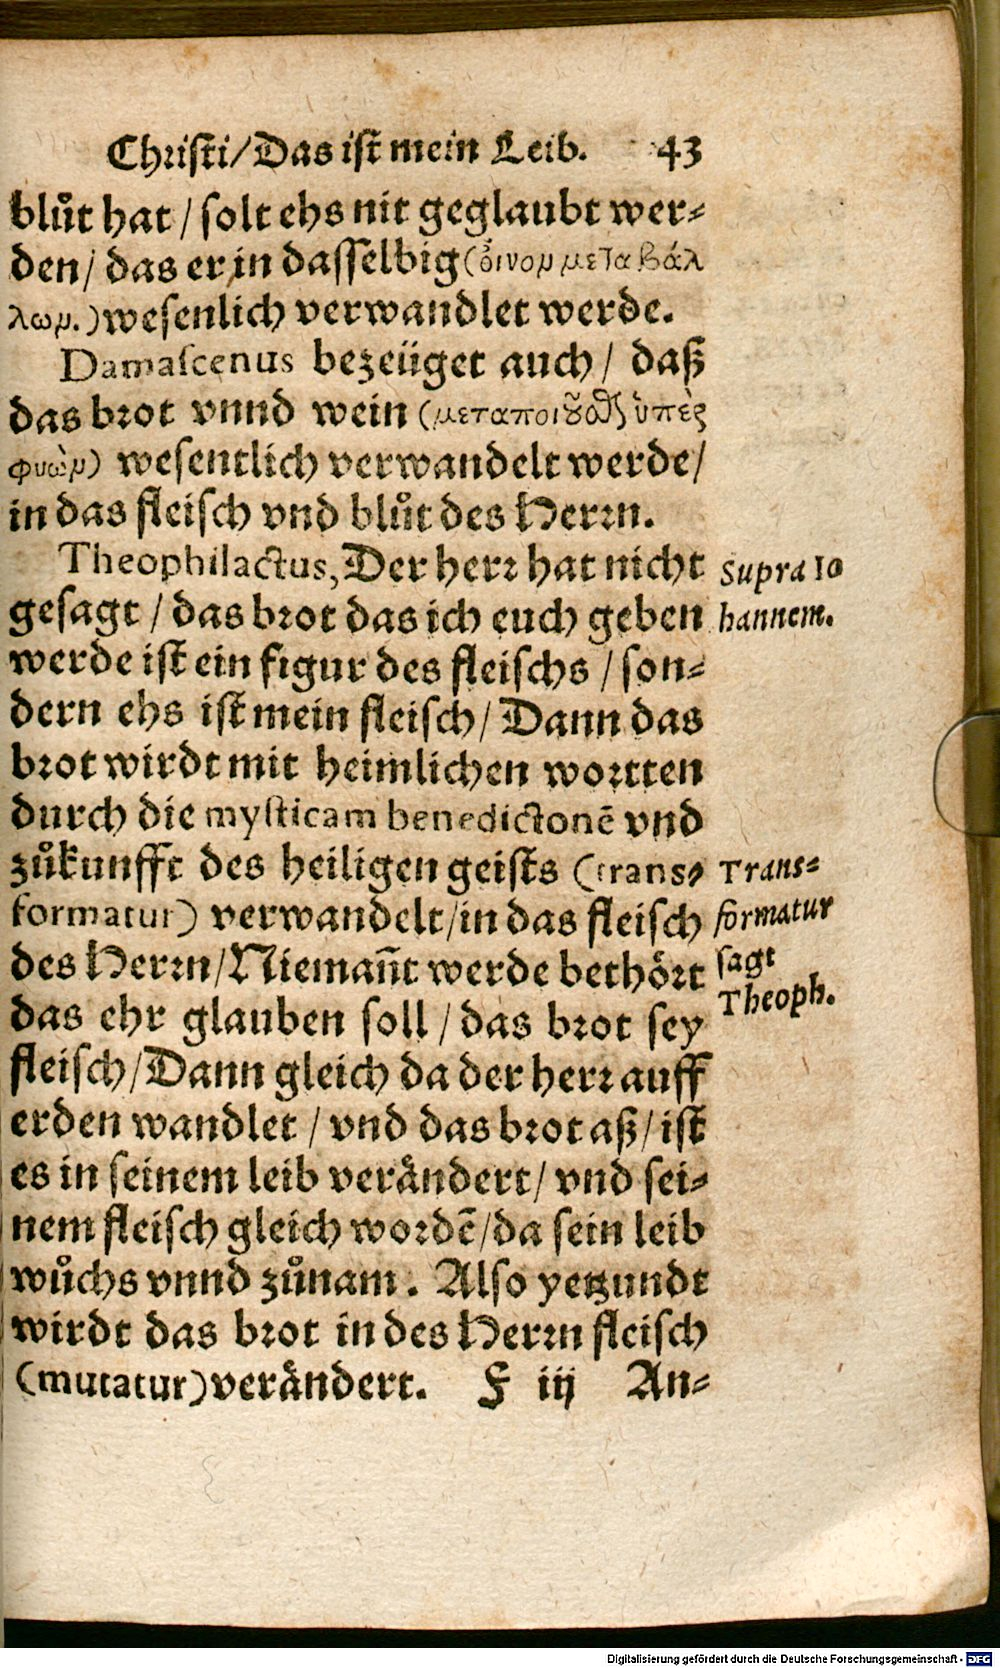 Christi/Das ist mein Leib. 43
blůt hat / solt ehs nit geglaubt wer⸗
den/ das er in dasselbig (ὄινομ μεταβάλ
λωμ.) wesenlich verwandlet werde.
Damascenus bezeüget auch / daß
das brot vnnd wein (μεταποιοῦνται ὑπὲρ
φυὼμ) wesentlich verwandelt werde/
in das fleisch vnd blůt des Herrn.
Theophilactus, Der herr hat nicht
gesagt / das brot das ich euch geben
werde ist ein figur des fleischs / son⸗
dern ehs ist mein fleisch / Dann das
brot wirdt mit heimlichen wortten
durch die mysticam benedictonē vnd
zůkunfft des heiligen geists (trans⸗
formatur) verwandelt/in das fleisch
des Herrn/Niemañt werde bethört
das ehr glauben soll / das brot sey
fleisch/Dann gleich da der herr auff
erden wandlet / vnd das brot aß/ ist
es in seinem leib verändert/ vnd sei⸗
nem fleisch gleich wordē/da sein leib
wůchs vnnd zůnam. Also yetzundt
wirdt das brot in des Herrn fleisch
(mutatur) verändert. F iij An⸗
Supra Io
hannem.
Trans⸗
formatur
sagt
Theoph.
Digitalisierung gefördert durch die Deutsche Forschungsgemeinschaft - DFG